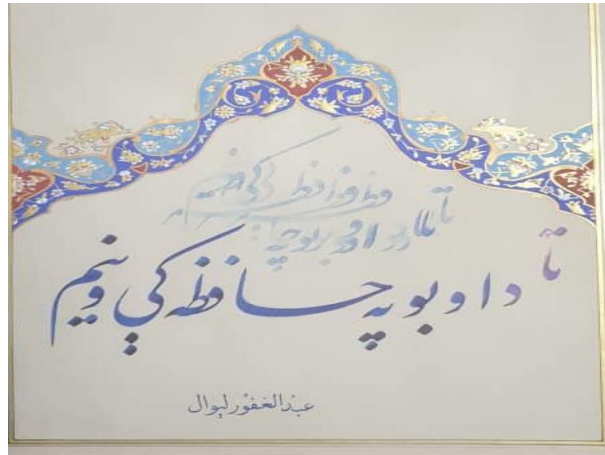 تا د اوبو په حافظه کې وینم
عبدالغفور لېوال